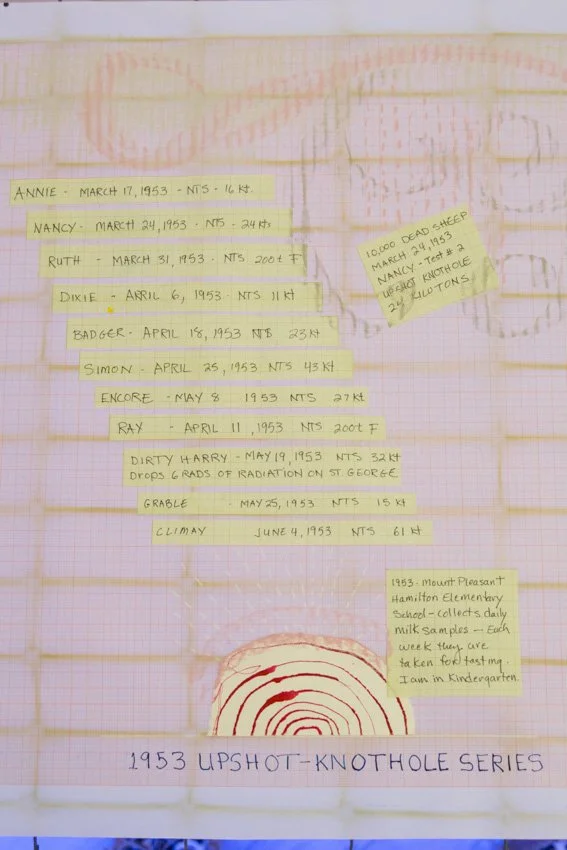 ANNIE - MARCH 17, 1953 - NTS - 16 kt.
NANCY - MARCH 24, 1953 - NTS - 24kts
RUTH - MARCH 31, 1953 - NTS 200t F
DIXIE - APRIL 6, 1953 - NTS 11 kt
BADGER - APRIL 18, 1953 NTS 23 kt
SIMON - APRIL 25, 1953 NTS 43 kt.
ENCORE - MAY 8 1953 NTS 27 kt
RAY - APRIL 11, 1953 NTS 200t F
DIRTY HARRY - MAY 19, 1953 NTS 32 kt
DROPS 6 RADS OF RADIATION ON ST GEORGE
GRABLE - MAY 25, 1953 NTS 15 kt
CLIMAY JUNE 4, 1953 NTS 61 kt
10,000 DEAD SHEEP
MARCH 24, 1953
NANCY - Test # 2
UPSHOT KNOTHOLE
24 KILOTONS
1953 - Mount Pleasant
Hamilton Elementary
School - collects daily
milk samples - Each
week they are
taken for testing.
I am in Kindergarten.
1953 UPSHOT-KNOTHOLE SERIES